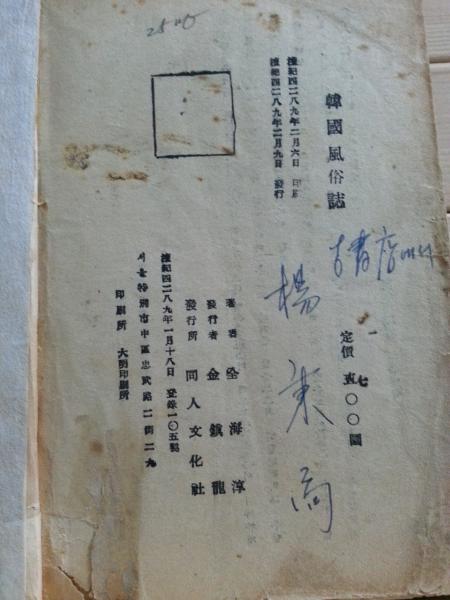 韓國風俗誌
檀紀四二八九年二月六日 印刷
檀紀四二八九年二月九日 發行
古書店에서
定價 七〇〇圜
楊東
著者 全海淳
發行者 金鎭龍
發行所 同人文化社
檀紀四二八九年一月十八日 登錄一〇五號
서울特別市中區忠武路二街二九
印刷所 大明印刷所